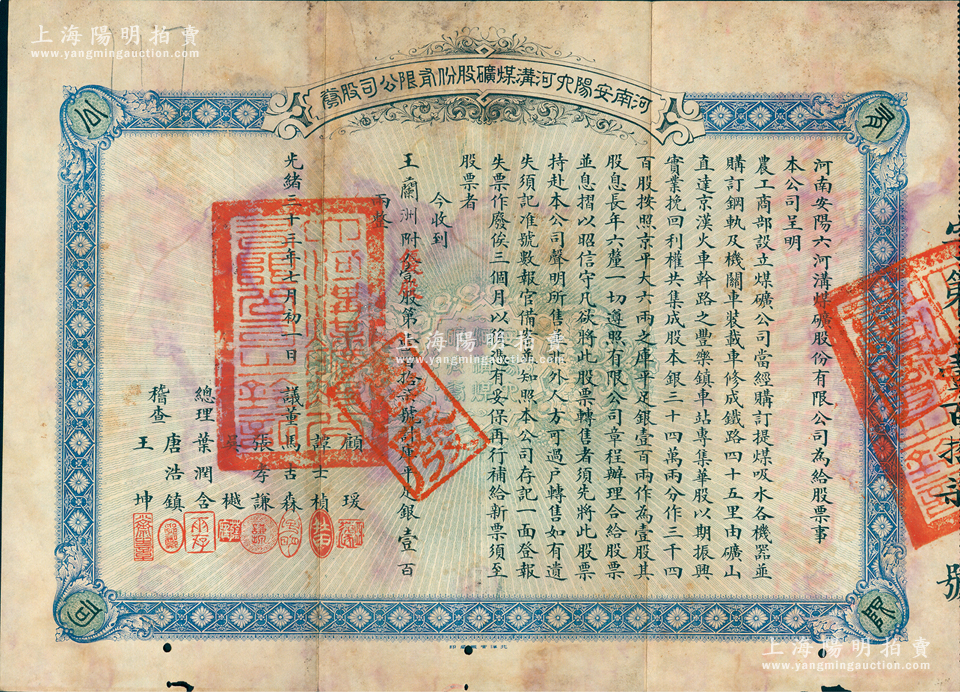 上海陽明拍賣
www.yangmingauction.com
河南安陽六河溝煤礦股份有限公司股票
有
限
公
司
河南安陽六河溝煤礦股份有限公司為給股票事
本公司呈明
農工商部設立煤礦公司當經購訂提煤吸水各機器並
購訂鋼軌及機關車裝載車修成鐵路四十五里由礦山
直達京漢火車幹路之豐樂鎮車站專集華股以期振興
實業挽回利權共集成股本銀三十四萬兩分作三千四
百股按照京平大六兩之庫平足銀壹百兩作為壹股其
股息長年六釐一切遵照有限公司章程辦理合給股票
並息摺以昭信守凡欲將此股票轉售者須先將此股票
持赴本公司聲明所售 外人方可過户轉售如有遺
失須記准號數報官備案 知照本公司存記一面登報
失票作廢俟三個月以後 有妥保再行補給新票須至
股票者
今收到
王蘭洲附 股第 百拾 號計庫平足銀壹百
兩整
光緒三十三年七月初一日
顧瑗
譚士楨
議董馬吉森
張孝謙
樾
總理葉潤含
唐浩鎮
稽查
王坤
第 百拾 號
上海陽明拍賣
www.yangmingauction.com
上海陽明拍賣
www.yangmingauction.com